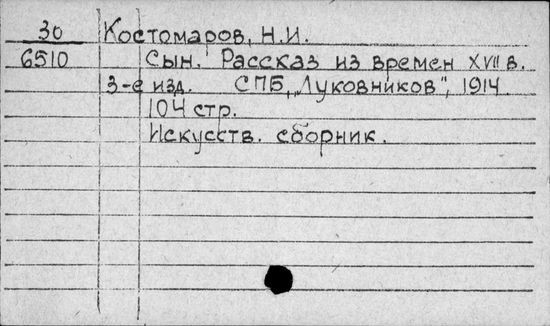 30 Костомаров, Н.И.
6510 Сын. Рассказ из времен XVII в.
3-е изд. СПБ, „Луковников", 1914.
104 стр.
Искусств. сборник.